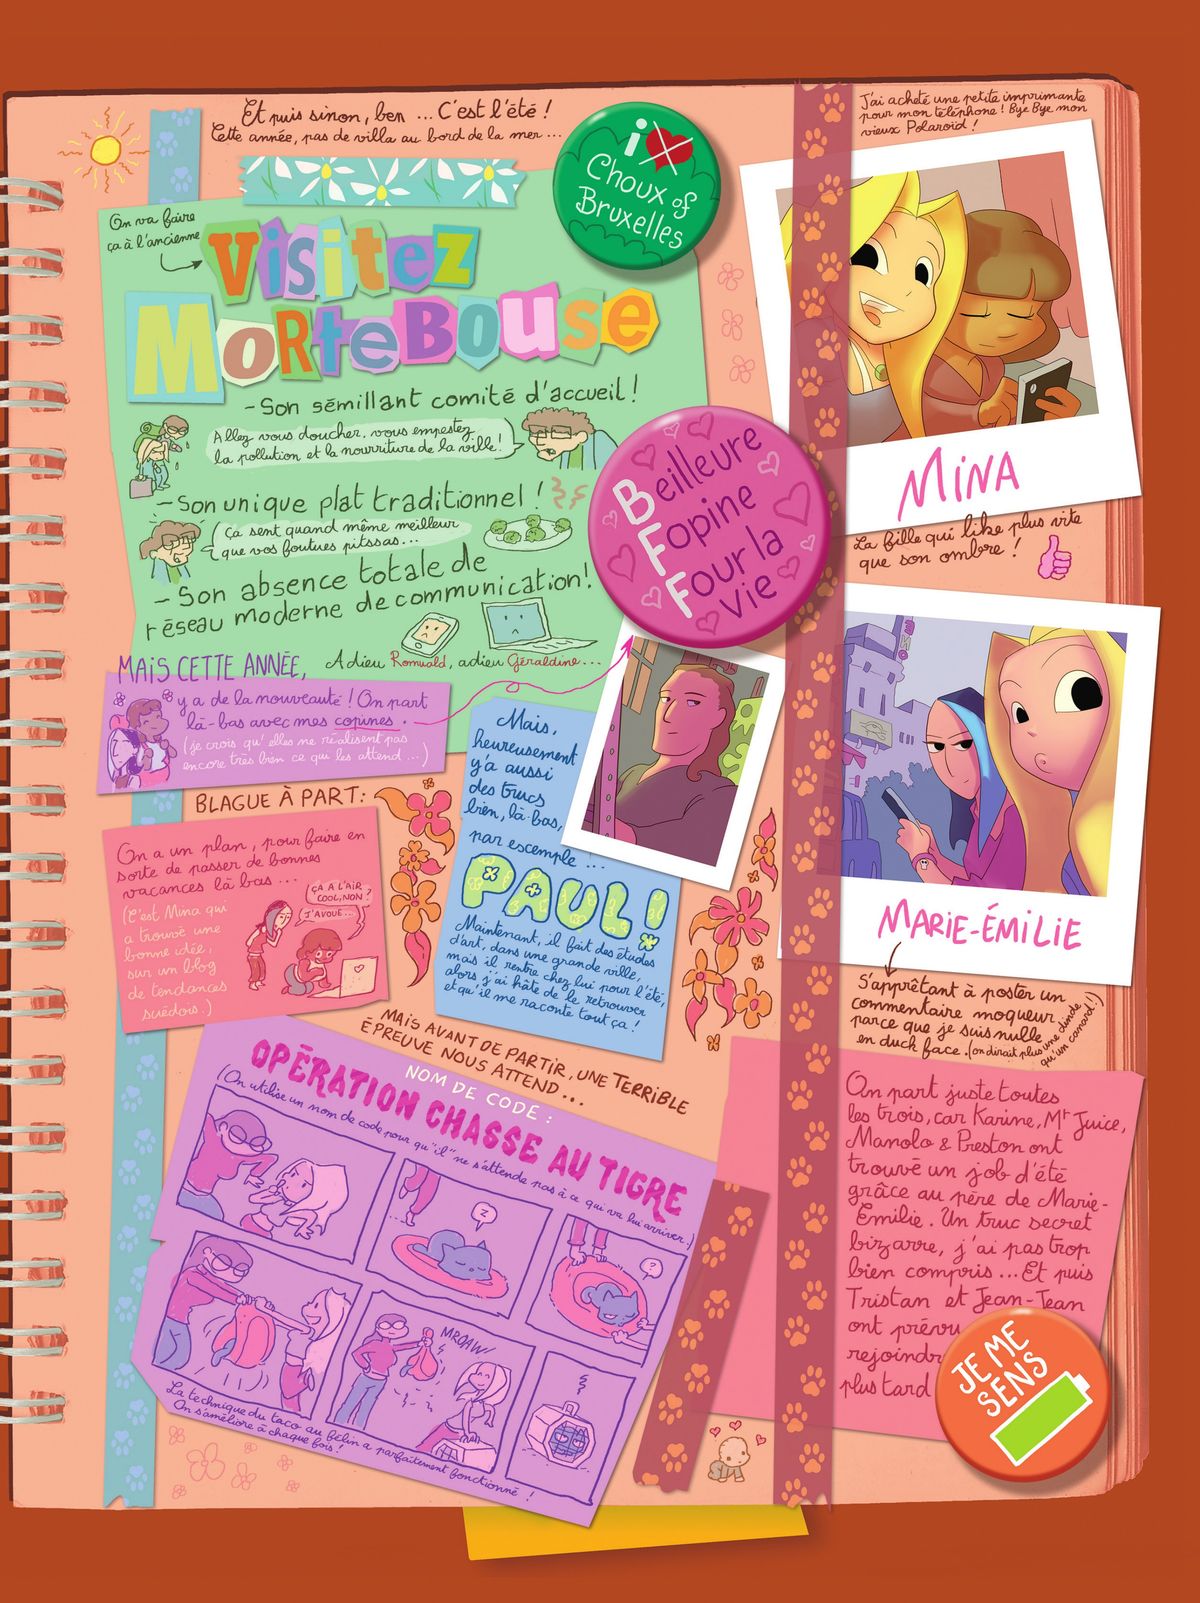 Et puis sinon, ben ... C'est l'été !
Cette année, pas de villa au bord de la mer ...
i
Choux of
Bruxelles
J'ai acheté une petite imprimante
pour mon téléphone ! Bye Bye mon
vieux Polaroid !
On va faire
ça à l'ancienne
Visitez
MorteBouse
- Son sémillant comité d'accueil !
Allez vous doucher, vous empestez
la pollution et la nourriture de la ville !
- Son unique plat traditionnel !
Ça sent quand même meilleur
que vos foutues pitssas...
- Son absence totale de
réseau moderne de communication !
Adieu Romuald, adieu Géraldine...
Beilleure
Fopine
Four la
vie
MiNA
La fille qui like plus vite
que son ombre !
MAIS CETTE ANNÉE,
y a de la nouveauté ! On part
là-bas avec mes copines.
(je crois qu'elles ne réalisent pas
encore très bien ce qui les attend...)
Mais,
heureusement
y'a aussi
des trucs
bien, là-bas,
par escemple ...
PAUL !
Maintenant, il fait des études
d'art, dans une grande ville,
mais il rentre chez lui pour l'été,
alors, j'ai hâte de le retrouver
et qu'il me raconte tout ça !
BLAGUE À PART :
On a un plan, pour faire en
sorte de passer de bonnes
vacances là bas ...
(C'est Mina qui
a trouvé une
bonne idée,
sur un blog
de tendances
suédois.)
ÇA A L'AIR
COOL, NON ?
J'AVOUE...
MARiE-ÉMiLiE
S'apprêtant à poster un
commentaire moqueur
parce que je suis nulle
en duck face. (on dirait plus une dinde
qu'un canard !)
MAIS AVANT DE PARTIR, UNE TERRIBLE
ÉPREUVE NOUS ATTEND ...
NOM DE CODE :
OPÉRATION CHASSE AU TIGRE
(On utilise un nom de code pour qu'"il" ne s'attende pas à ce qui va lui arriver.)
Z
?
MRQAW!
La technique du taco au félin a parfaitement fonctionné !
On s'améliore à chaque fois !
On part juste toutes
les trois, car Karine, Mr Juice,
Manolo & Preston ont
trouvé un job d'été
grâce au père de Marie-
Émilie. Un truc secret
bizarre, j'ai pas trop
bien compris ... Et puis
Tristan et Jean-Jean
ont prévu
rejoindr
plus tard
JE ME
SENS